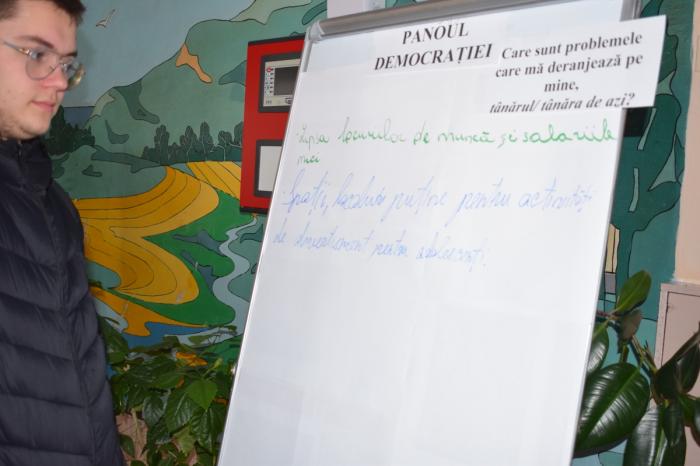 PANOUL
DEMOCRAȚIEI
Care sunt problemele
care mă deranjează pe
mine,
tânărul/ tânăra de azi?
-Lipsa locurilor de muncă și salariile
mici
-Spații, localuri puține pentru activități
de divertisment pentru adolescenți.